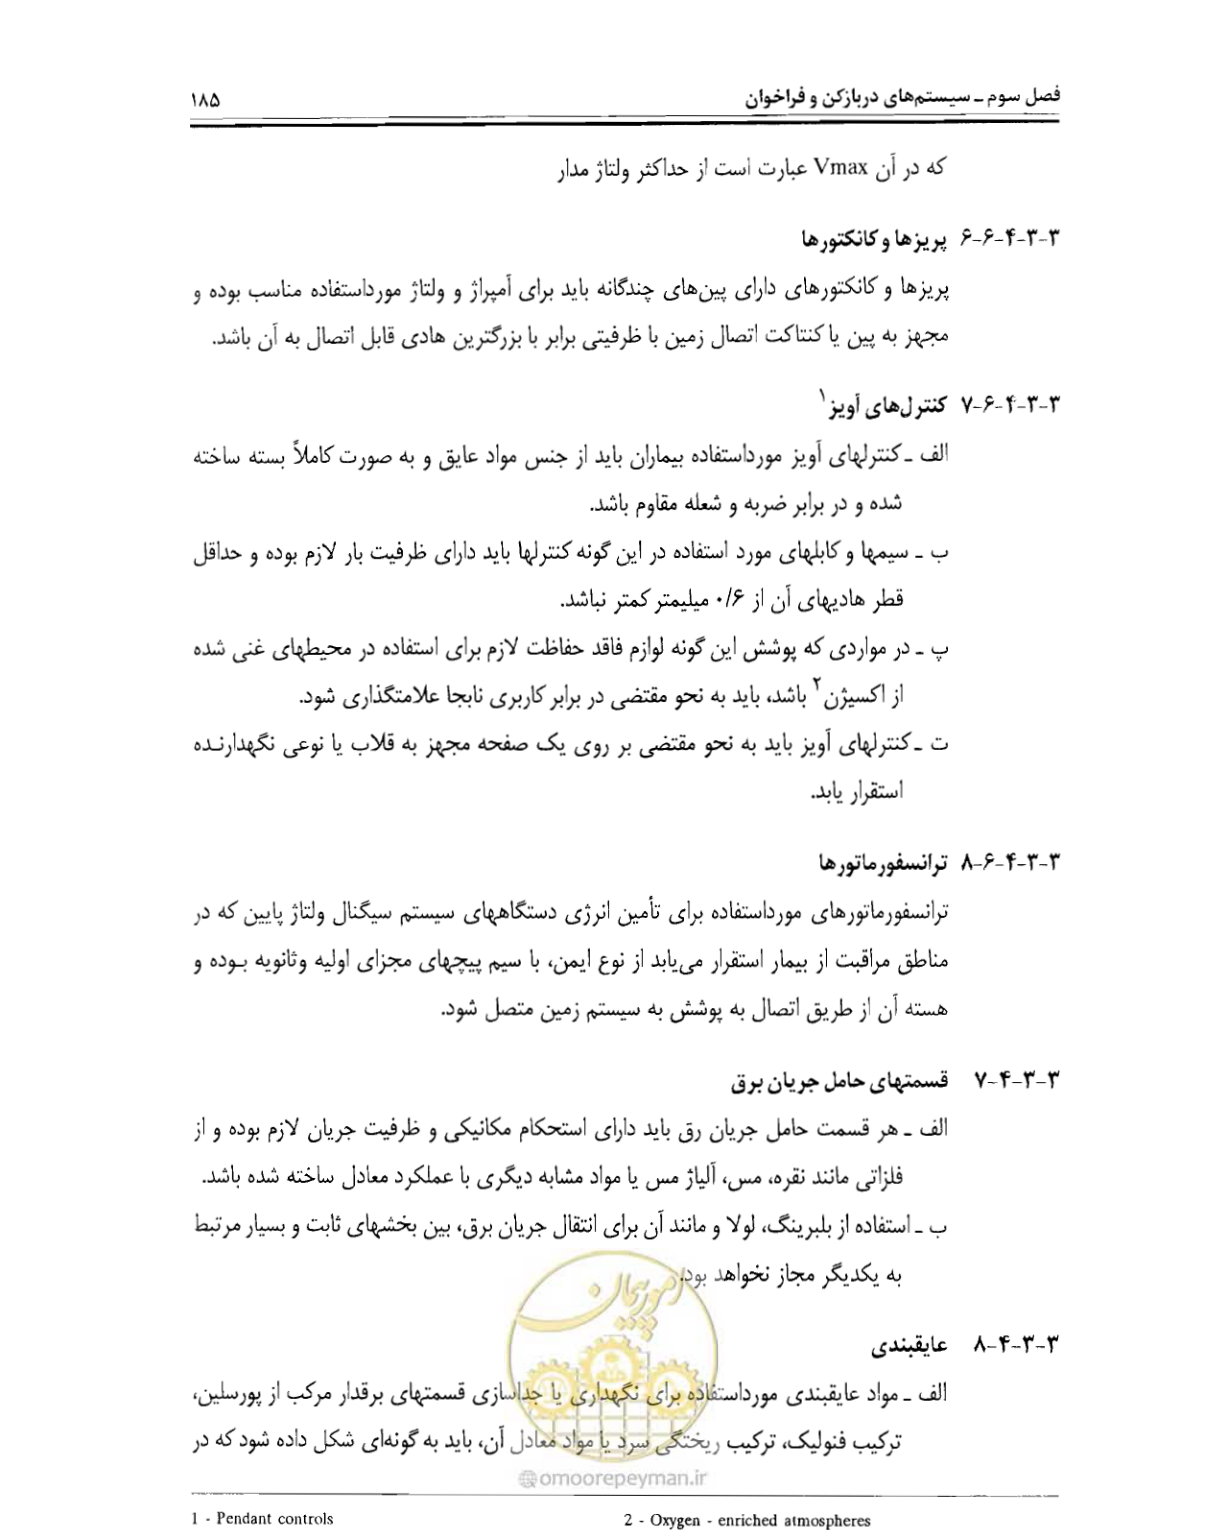 فصل سوم ـ سیستم‌های دربازکن و فراخوان ۱۸۵
که در آن Vmax عبارت است از حداکثر ولتاژ مدار
۳-۳-۴-۶-۶ پریزها و کانکتورها
پریزها و کانکتورهای دارای پین‌های چندگانه باید برای آمپراژ و ولتاژ مورداستفاده مناسب بوده و
مجهز به پین یا کنتاکت اتصال زمین با ظرفیتی برابر با بزرگترین هادی قابل اتصال به آن باشد.
۳-۳-۴-۶-۷ کنترل‌های آویز۱
الف ـ کنترلهای آویز مورداستفاده بیماران باید از جنس مواد عایق و به صورت کاملاً بسته ساخته
شده و در برابر ضربه و شعله مقاوم باشد.
ب ـ سیمها و کابلهای مورد استفاده در این گونه کنترلها باید دارای ظرفیت بار لازم بوده و حداقل
قطر هادیهای آن از ۰/۶ میلیمتر کمتر نباشد.
پ ـ در مواردی که پوشش این گونه لوازم فاقد حفاظت لازم برای استفاده در محیطهای غنی شده
از اکسیژن۲ باشد، باید به نحو مقتضی در برابر کاربری نابجا علامتگذاری شود.
ت ـ کنترلهای آویز باید به نحو مقتضی بر روی یک صفحه مجهز به قلاب یا نوعی نگهدارنده
استقرار یابد.
۳-۳-۴-۶-۸ ترانسفورماتورها
ترانسفورماتورهای مورداستفاده برای تأمین انرژی دستگاههای سیستم سیگنال ولتاژ پایین که در
مناطق مراقبت از بیمار استقرار می‌یابد از نوع ایمن، با سیم پیچهای مجزای اولیه وثانویه بوده و
هسته آن از طریق اتصال به پوشش به سیستم زمین متصل شود.
۳-۳-۴-۷ قسمتهای حامل جریان برق
الف ـ هر قسمت حامل جریان رق باید دارای استحکام مکانیکی و ظرفیت جریان لازم بوده و از
فلزاتی مانند نقره، مس، آلیاژ مس یا مواد مشابه دیگری با عملکرد معادل ساخته شده باشد.
ب ـ استفاده از بلبرینگ، لولا و مانند آن برای انتقال جریان برق، بین بخشهای ثابت و بسیار مرتبط
به یکدیگر مجاز نخواهد بود.
امور پیمان
۳-۳-۴-۸ عایقبندی
الف ـ مواد عایقبندی مورداستفاده برای نگهداری یا جداسازی قسمتهای برقدار مرکب از پورسلین،
ترکیب فنولیک، ترکیب ریختگی سرد یا مواد معادل آن، باید به گونه‌ای شکل داده شود که در
omoorepeyman.ir
1 - Pendant controls 2 - Oxygen - enriched atmospheres